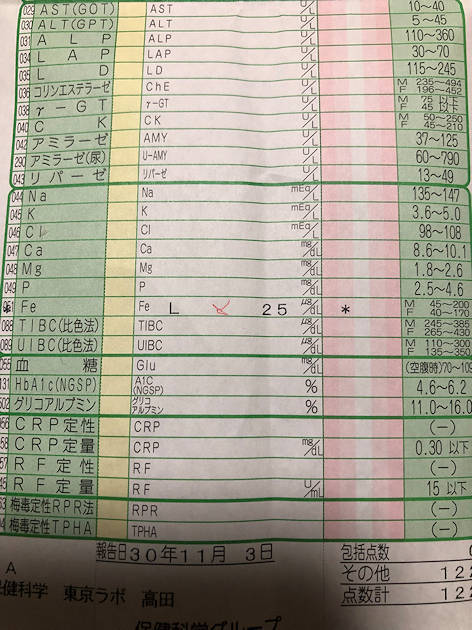 029 AST(GOT) AST U/L 10～40
030 ALT(GPT) ALT U/L 5～45
031 ALP ALP U/L 110～360
034 LAP LAP U/L 30～70
035 LD LD U/L 115～245
036 コリンエステラーゼ ChE U/L M 235～494 F 196～452
038 γ-GT γ-GT U/L M 75 以下 F 45 以下
040 CK CK U/L M 50～250 F 45～210
042 アミラーゼ AMY U/L 37～125
290 アミラーゼ(尿) U-AMY U/L 60～790
043 リパーゼ リパーゼ U/L 13～49
044 Na Na mEq/L 135～147
045 K K mEq/L 3.6～5.0
046 Cl Cl mEq/L 98～108
047 Ca Ca mg/dL 8.6～10.1
048 Mg Mg mg/dL 1.8～2.6
049 P P mg/dL 2.5～4.6
Fe Fe L 25 μg/dL * M 45～200 F 40～170
088 TIBC(比色法) TIBC μg/dL M 245～385 F 265～430
089 UIBC(比色法) UIBC μg/dL M 110～300 F 135～350
055 血糖 Glu mg/dL (空腹時)70～109
131 HbA1c(NGSP) A1C (NGSP) % 4.6～6.2
502 グリコアルブミン グリコアルブミン % 11.0～16.0
56 CRP定性 CRP (－)
58 CRP定量 CRP mg/dL 0.30 以下
57 RF定性 RF (－)
RF定量 RF U/mL 15 以下
53 梅毒定性RPR法 RPR (－)
梅毒定性TPHA TPHA (－)
報告日 30年11月 3日 包括点数
A その他 122
保健科学 東京ラボ 髙田 点数計 122
保健科学グループ